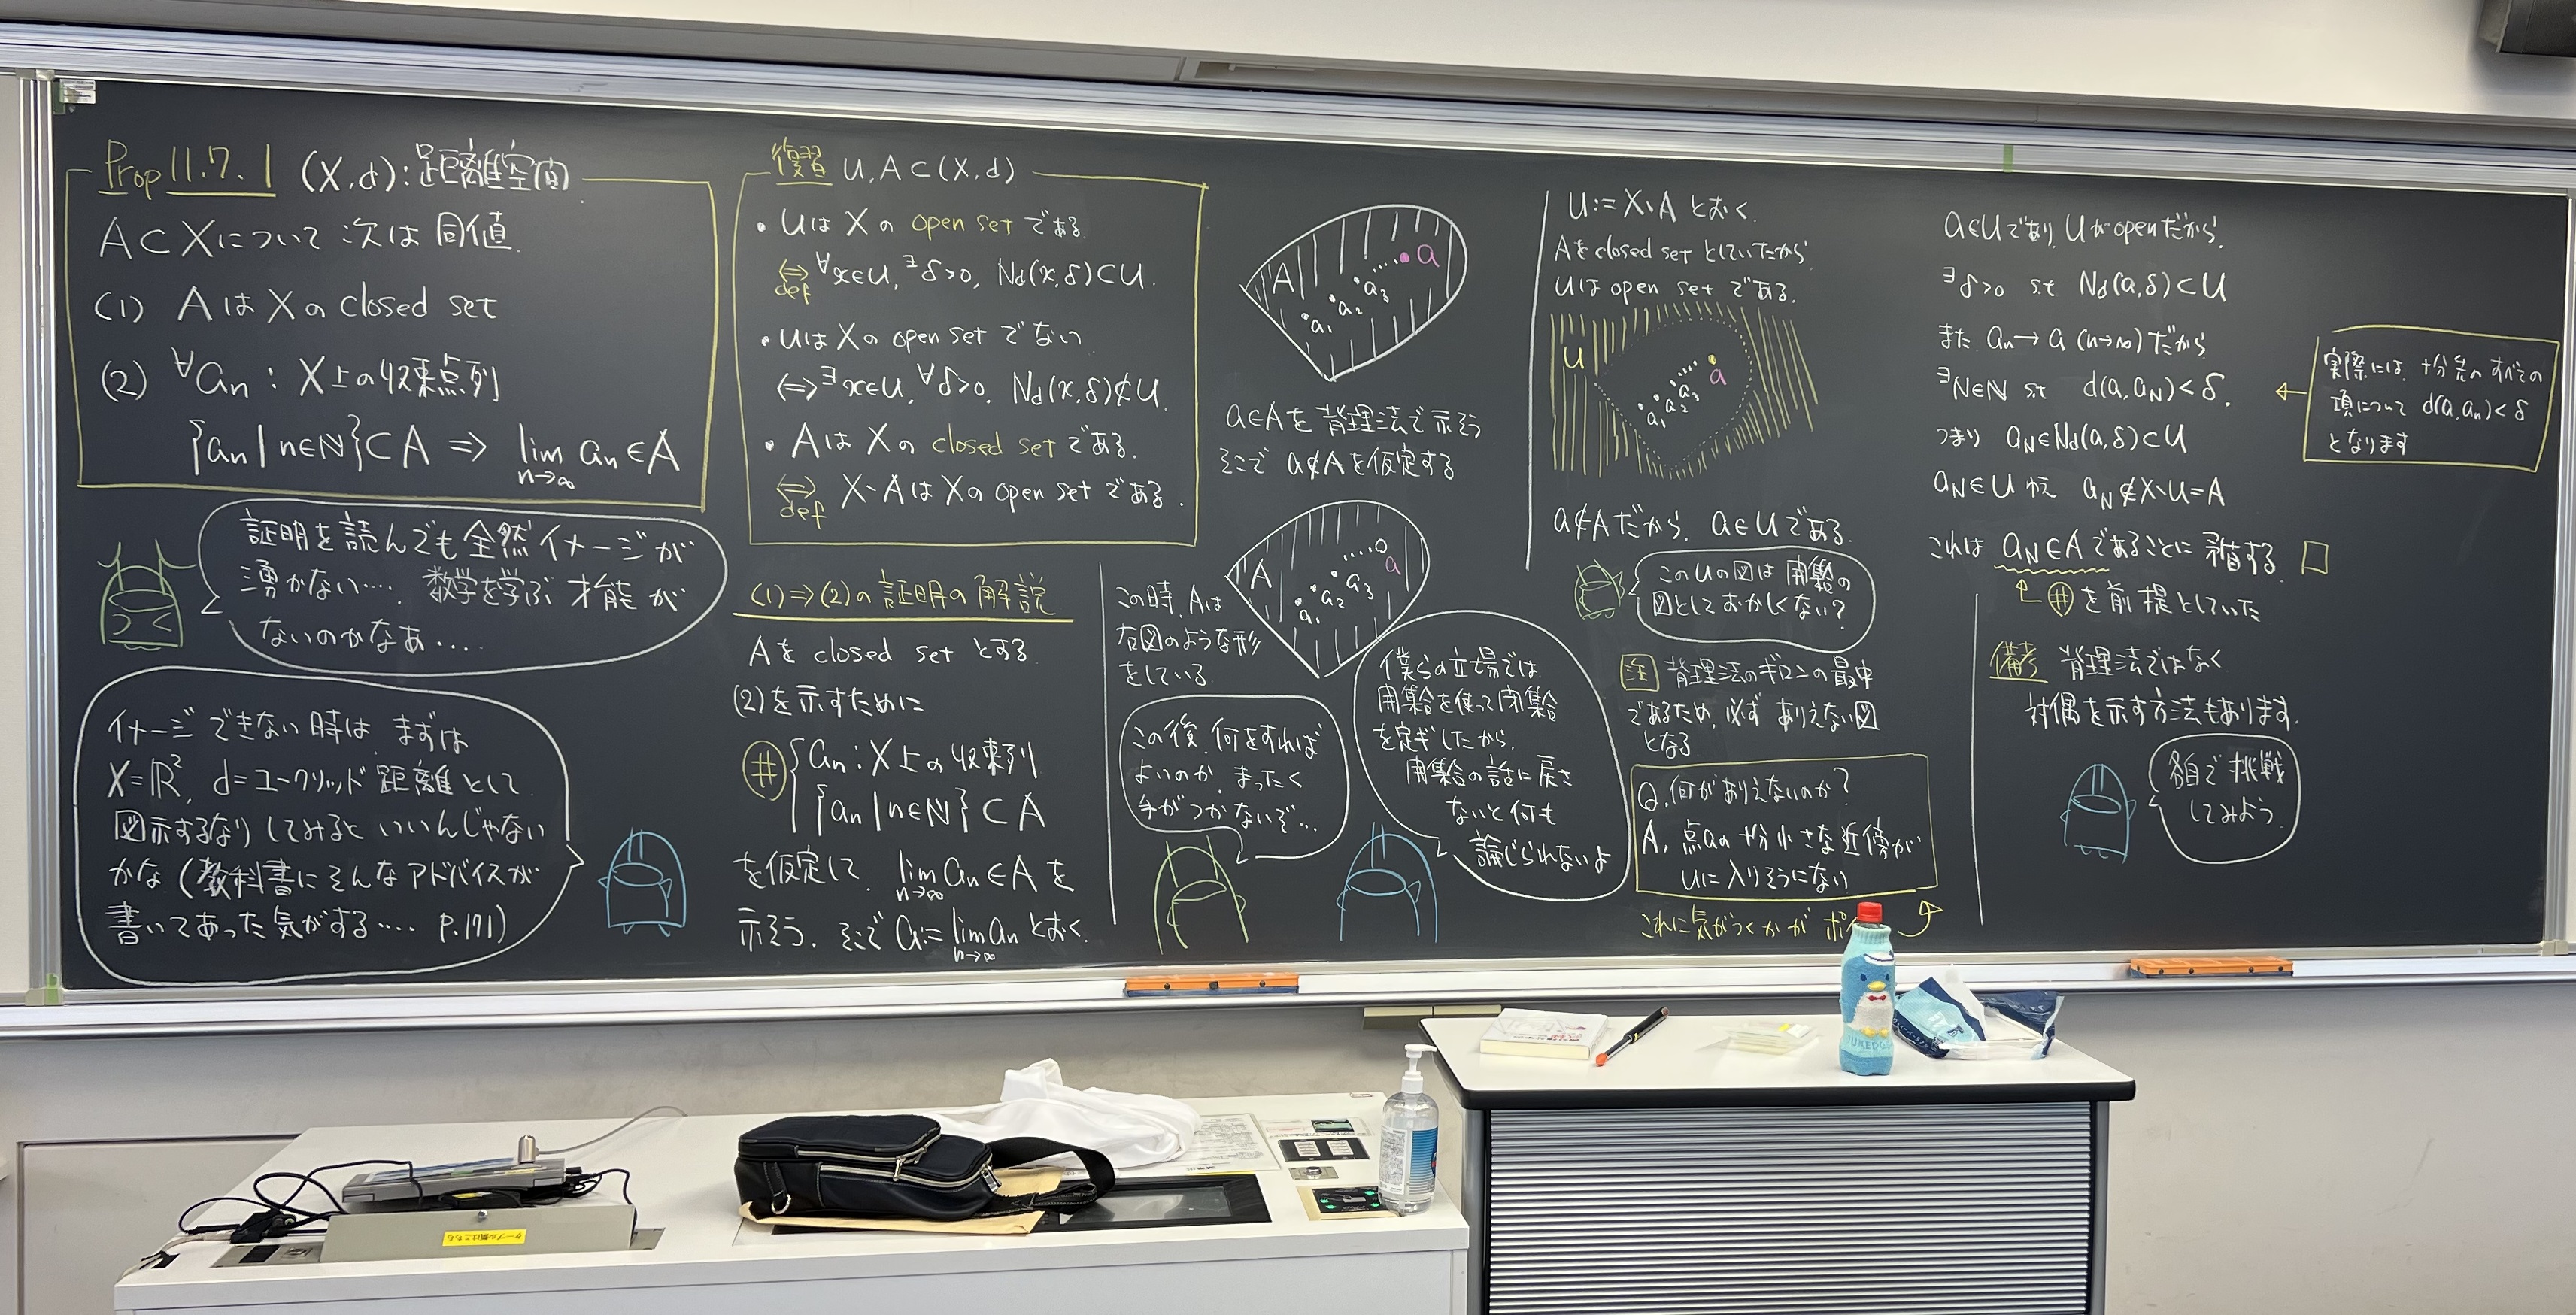 Prop 11.7.1 (X,d):距離空間
A⊂Xについて次は同値.
(1) AはXのclosed set
(2) ∀an : X上の収束点列
{an|n∈N}⊂A ⇒ lim an∈A
n→∞
証明を読んでも全然イメージが
湧かない…. 数学を学ぶ才能が
ないのかなあ….
イメージできない時は、まずは
X=ℝ², d=ユークリッド距離として
図示するなりしてみるといいんじゃない
かな (教科書にそんなアドバイスが
書いてあった気がする…. p.171)
復習 U,A⊂(X,d)
・UはXのopen setである
⇔def ∀x∈U, ∃δ>0, Nd(x,δ)⊂U.
・UはXのopen setでない
⇔ ∃x∈U, ∀δ>0. Nd(x,δ)⊄U.
・AはXのclosed setである.
⇔def X∖AはXのopen setである.
(1)⇒(2)の証明の解説
Aをclosed setとする.
(2)を示すために
# an : X上の収束列
{an|n∈N}⊂A
を仮定して, lim an∈Aを
n→∞
示そう. そこでa:=lim anとおく.
n→∞
A a1 a2 a3 a
a∈Aを背理法で示そう
そこでa∉Aを仮定する
A a1 a2 a3 a
この時、Aは
右図のような形
をしている
この後、何をすれば
よいのか、まったく
手がつかないぞ…
僕らの立場では
開集合を使って閉集合
を定ギしたから、
開集合の話に戻さ
ないと何も
論じられないよ
U:=X∖Aとおく.
Aをclosed setとしていたから
Uはopen setである.
U a1 a2 a3 a
a∉Aだから, a∈Uである.
このUの図は開集合の
図としておかしくない?
注 背理法のギロンの最中
であるため、必ずありえない図
となる
Q.何がありえないのか?
A. 点aの十分小さな近傍が
Uに入りそうにない
これに気がつくかがポ
a∈Uであり, Uがopenだから.
∃δ>0 s.t Nd(a,δ)⊂U
また an→a (n→∞)だから
∃N∈N s.t d(a,aN)<δ.
つまり aN∈Nd(a,δ)⊂U
aN∈Uゆえ aN∉X∖U=A
これは aN∈Aであることに矛盾する □
#を前提としていた
実際には、十分先のすべての
項についてd(a,an)<δ
となります
備考 背理法ではなく
対偶を示す方法もあります.
各自で挑戦
してみよう
ケーブル類はこちら